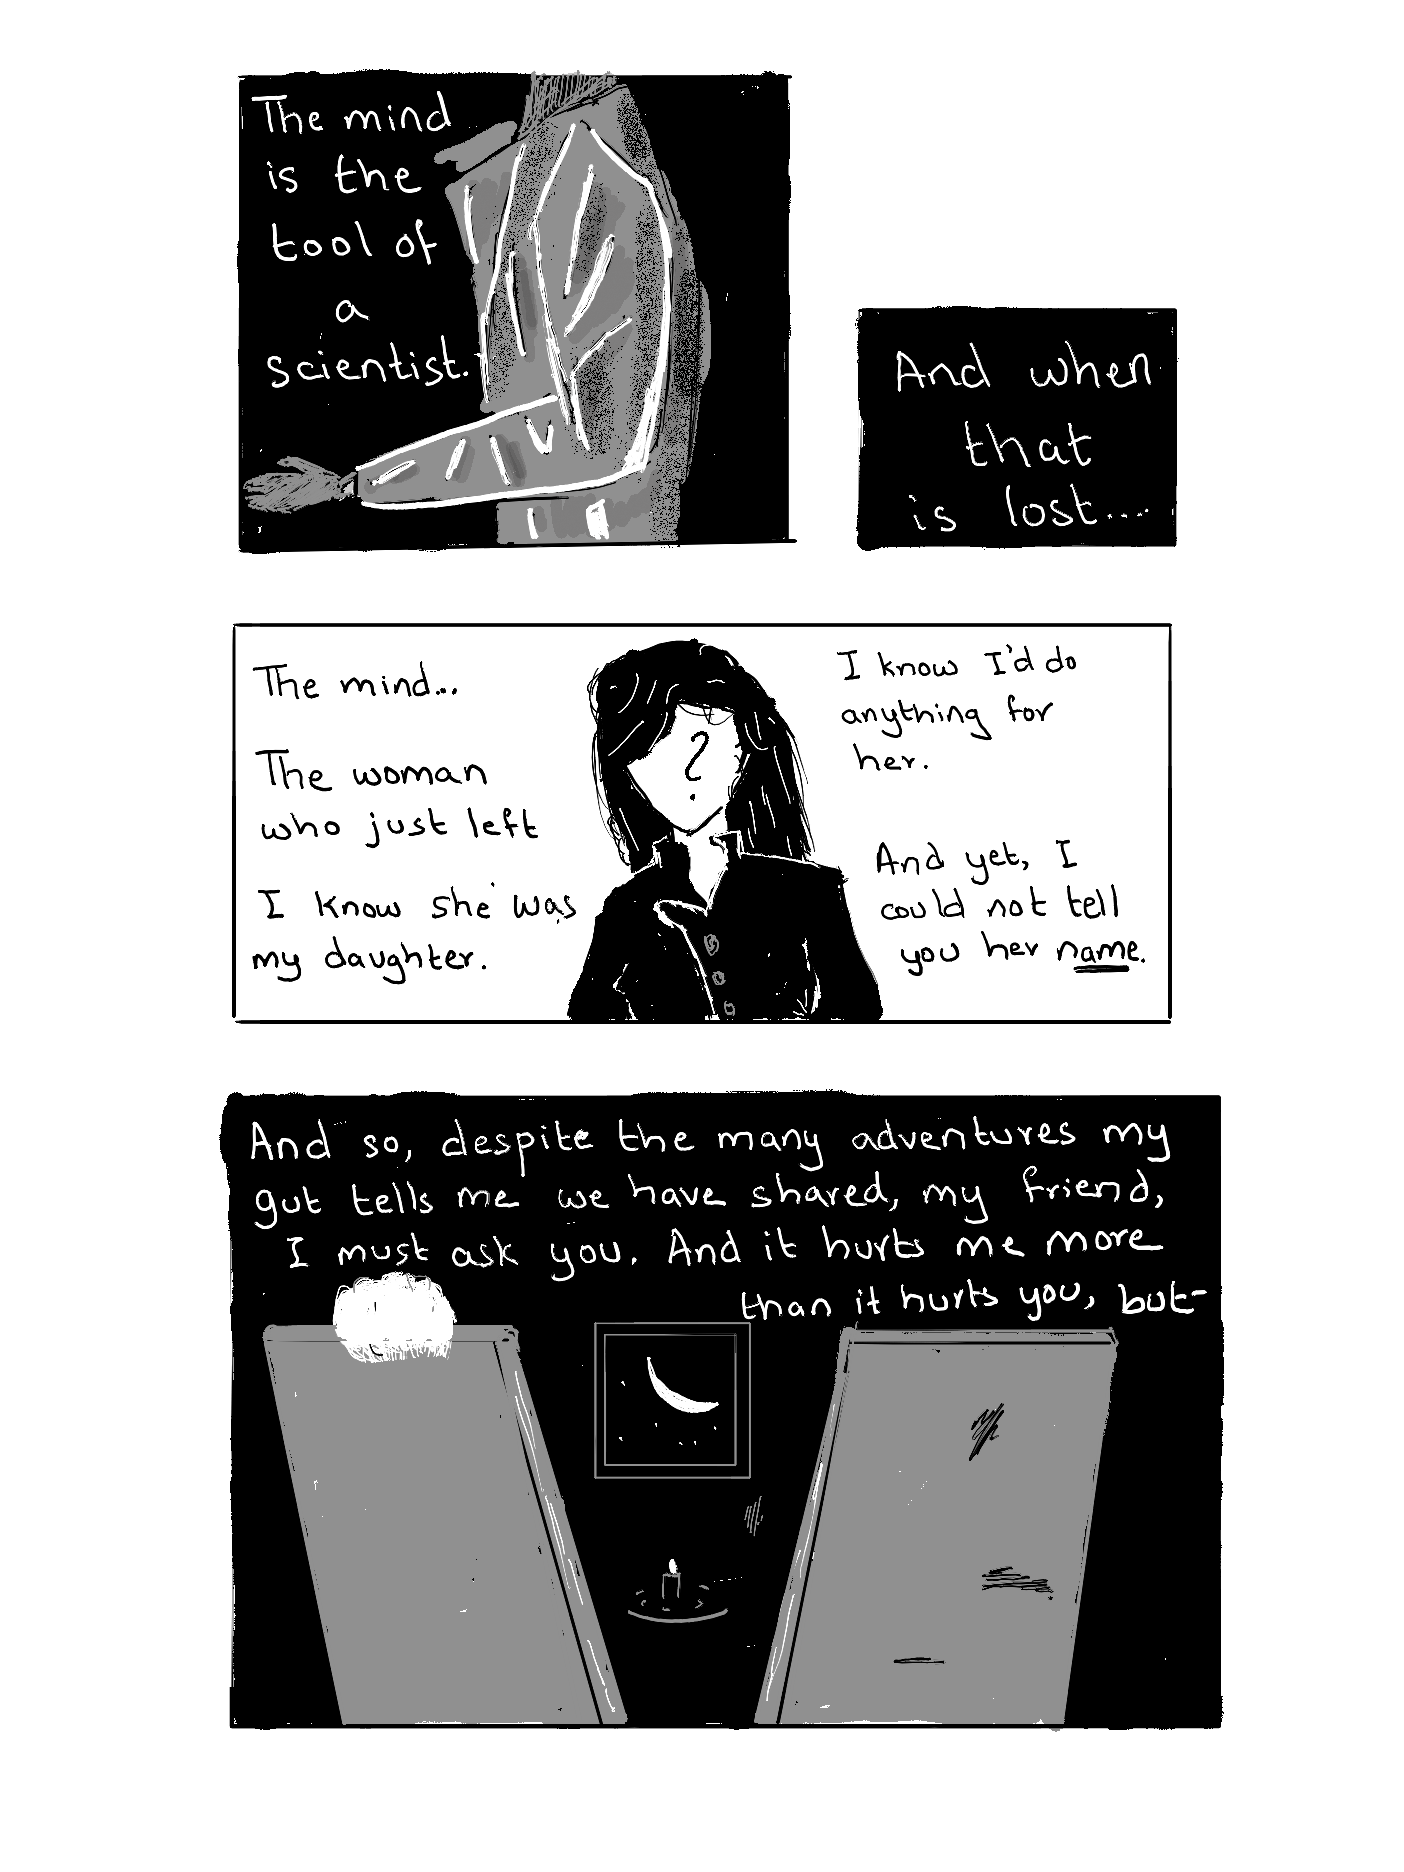 The mind
is the
tool of
a
scientist.
And when
that
is lost....
The mind...
The woman
who just left
I know she was
my daughter.
?
I know I'd do
anything for
her.
And yet, I
could not tell
you her name.
And so, despite the many adventures my
gut tells me we have shared, my friend,
I must ask you. And it hurts me more
than it hurts you, but-